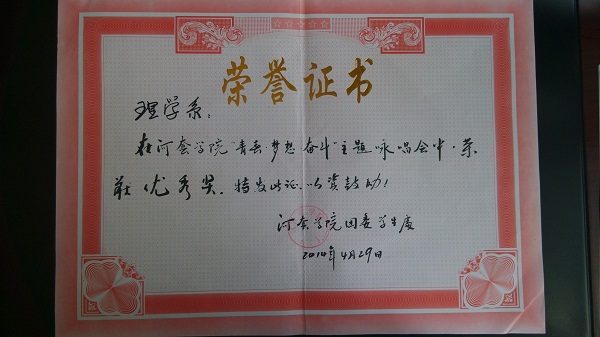 荣誉证书
理学系：
在河套学院"青春·梦想·奋斗"主题咏唱会中，荣
获优秀奖，特发此证，以资鼓励！
河套学院团委学生处
2014年4月29日